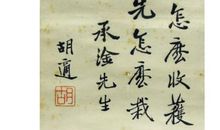 怎麼收穫
先怎麼栽
承淦先生
胡適
胡